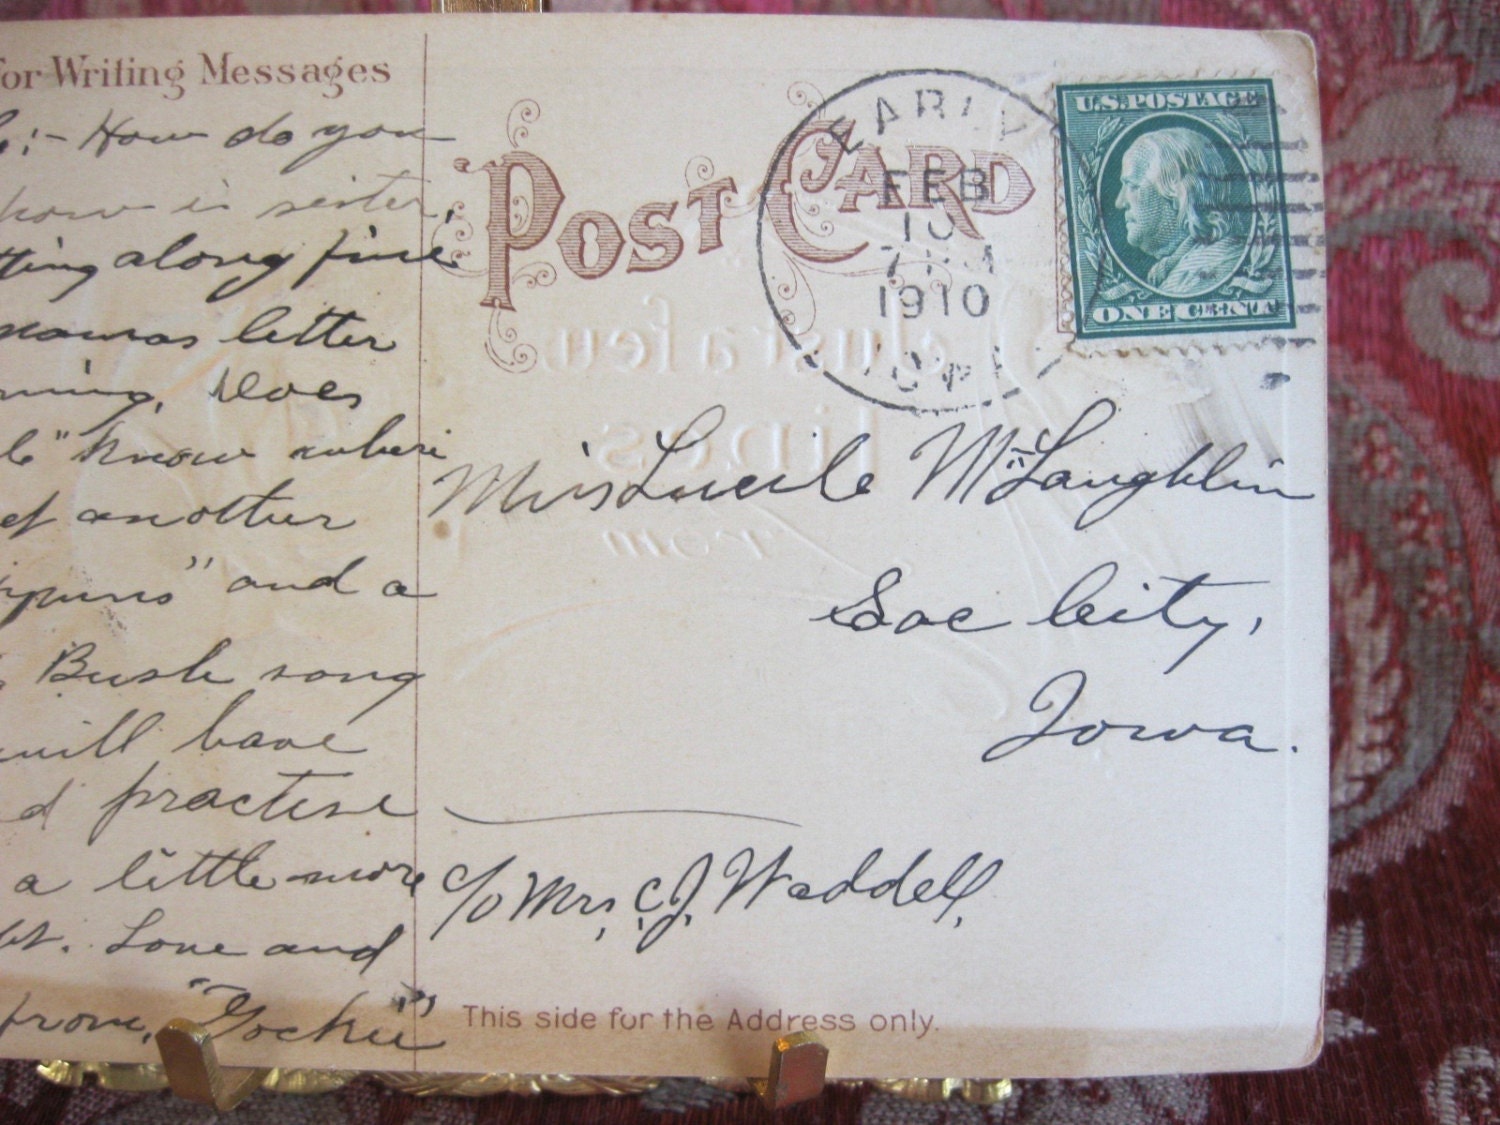 For Writing Messages
:- How do you
how is sister,
tting along fine
mamas letter
ning. Does
" know where
another
" and a
Bush song
will have
d practise
a little more
Love and
from, "Gochie"
POST CARD
EARLY
FEB
10
1910
IOWA
U.S. POSTAGE
ONE CENT
Just a few
lines
from
Miss Lucile McLaughlin
Sac City,
Iowa.
c/o Mrs. C.J. Waddell,
This side for the Address only.